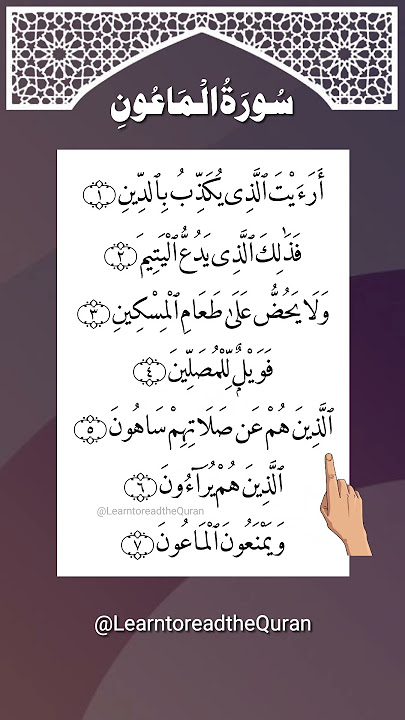 سُورَةُ الْمَاعُونِ
أَرَءَيْتَ ٱلَّذِى يُكَذِّبُ بِالدِّينِ ١
فَذَٰلِكَ ٱلَّذِى يَدُعُّ ٱلْيَتِيمَ ٢
وَلَا يَحُضُّ عَلَىٰ طَعَامِ ٱلْمِسْكِينِ ٣
فَوَيْلٌ لِّلْمُصَلِّينَ ٤
ٱلَّذِينَ هُمْ عَن صَلَاتِهِمْ سَاهُونَ ٥
ٱلَّذِينَ هُمْ يُرَآءُونَ ٦
@LearntoreadtheQuran
وَيَمْنَعُونَ ٱلْمَاعُونَ ٧
@LearntoreadtheQuran